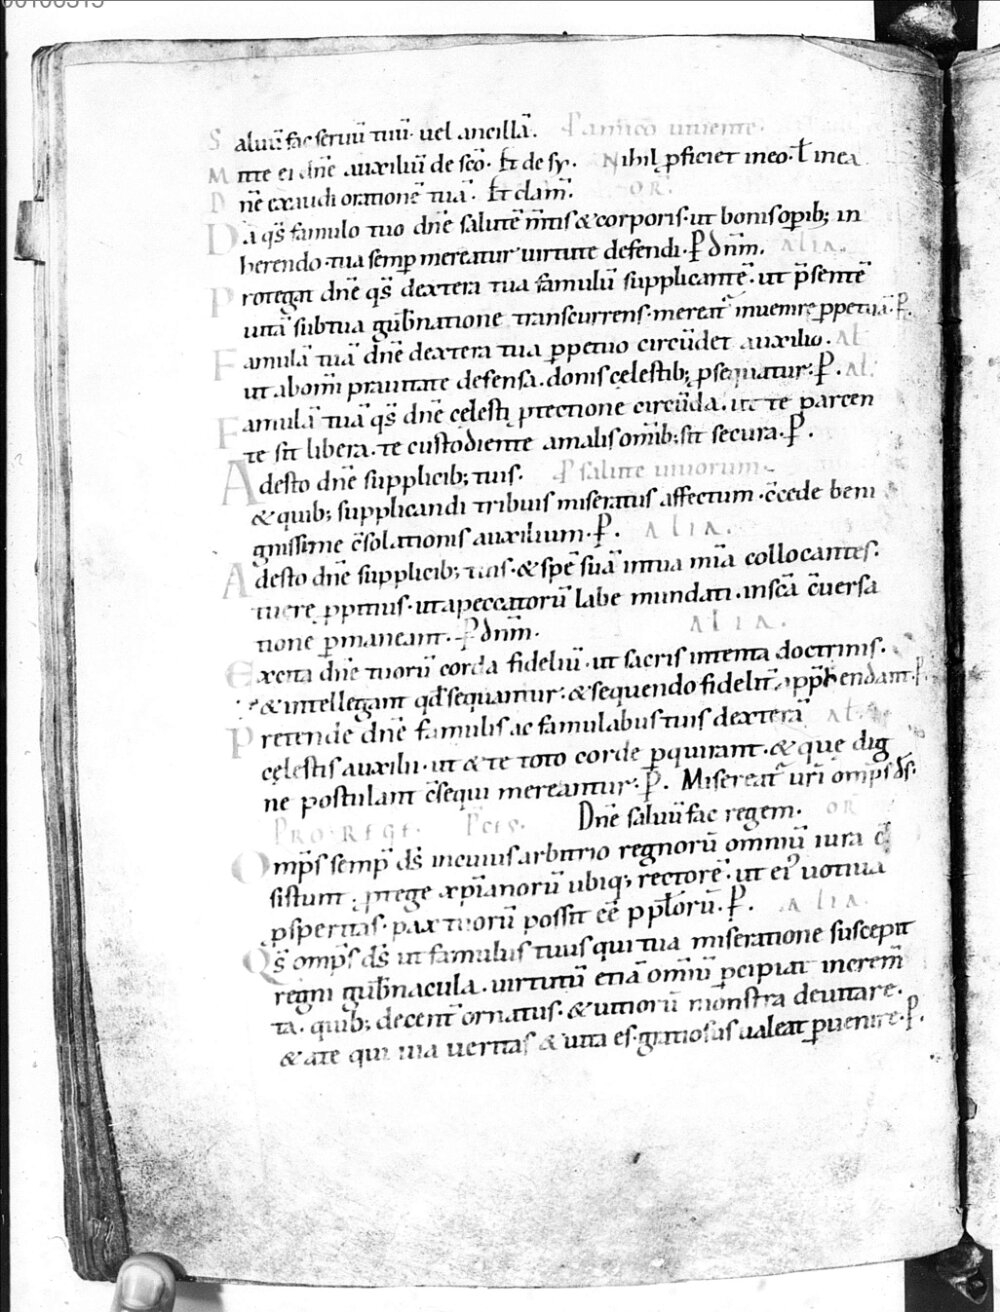 Saluū fac seruū tuū· uel ancillā. P amico uiuente.
Mitte ei dn̄e auxiliū de sc̄o· Et de sy. Nihil ꝑficiet in eo· ł in ea
Dn̄e exaudi orationē tuā· Et clam̄.
OR.
Da qs̄ famulo tuo dn̄e salutē m̄tis & corporis· ut bonis oꝑib; in
herendo· tua semꝑ mereatur uirtute defendi· P dn̄m. ALIA.
Protegat dn̄e qs̄ dextera tua famulū supplicantē· ut p̄sentē
uitā sub tua gub̄natione transcurrens· mereat̄ inuenire ꝑpetuā· P.
Famulā tuā dn̄e dextera tua ꝑpetuo circūdet auxilio. Al
ut ab om̄i prauitate defensa· donis cęlestib; ꝓsequatur· P. Al·
Famulā tuā qs̄ dn̄e cęlesti ꝓtectione circūda· ut te parcen
te sit libera· te custodiente a malis om̄ib; sit secura· P.
Adesto dn̄e supplicib; tuis. P salute uiuorum
& quib; supplicandi tribuis miseratus affectum· c̄cede beni
gnissime c̄solationis auxilium· P. ALIA.
Adesto dn̄e supplicib; tuis· & spē suā in tua mīa collocantes·
tuere ꝓpitius· ut a peccatorū labe mundati· in sc̄a c̄uersa
tione ꝑmaneant· P dn̄m. ALIA.
Excita dn̄e tuorū corda fideliū· ut sacris intenta doctrinis·
& intellegant qd̄ sequantur· & sequendo fidelit̄ app̄hendant· P
Pretende dn̄e famulis ac famulabus tuis dexterā Al·
cęlestis auxilii· ut & te toto corde ꝑquirant· & quę dig
ne postulant c̄sequi mereantur· P. Misereat̄ uri omp̄s ds̄·
PRO REGE· P̄ces. Dn̄e saluū fac regem. OR
Omp̄s semp̄ ds̄ in cuius arbitrio regnorū omniū iura c̄
sistunt· ꝓtege xp̄ianorū ubiq; rectorē· ut ei' uotiua
ꝓsperitas· pax tuorū possit eē pp̄lorū· P. ALIA.
Qs̄ omp̄s ds̄ ut famulus tuus qui tua miseratione suscepit
regni gub̄nacula· uirtutū etiā om̄iū ꝑcipiat increm̄
ta· quib; decent̄ ornatus· & uitiorū monstra deuitare·
& a te qui uia ueritas & uita es· gratiosus ualeat ꝑuenire· P.